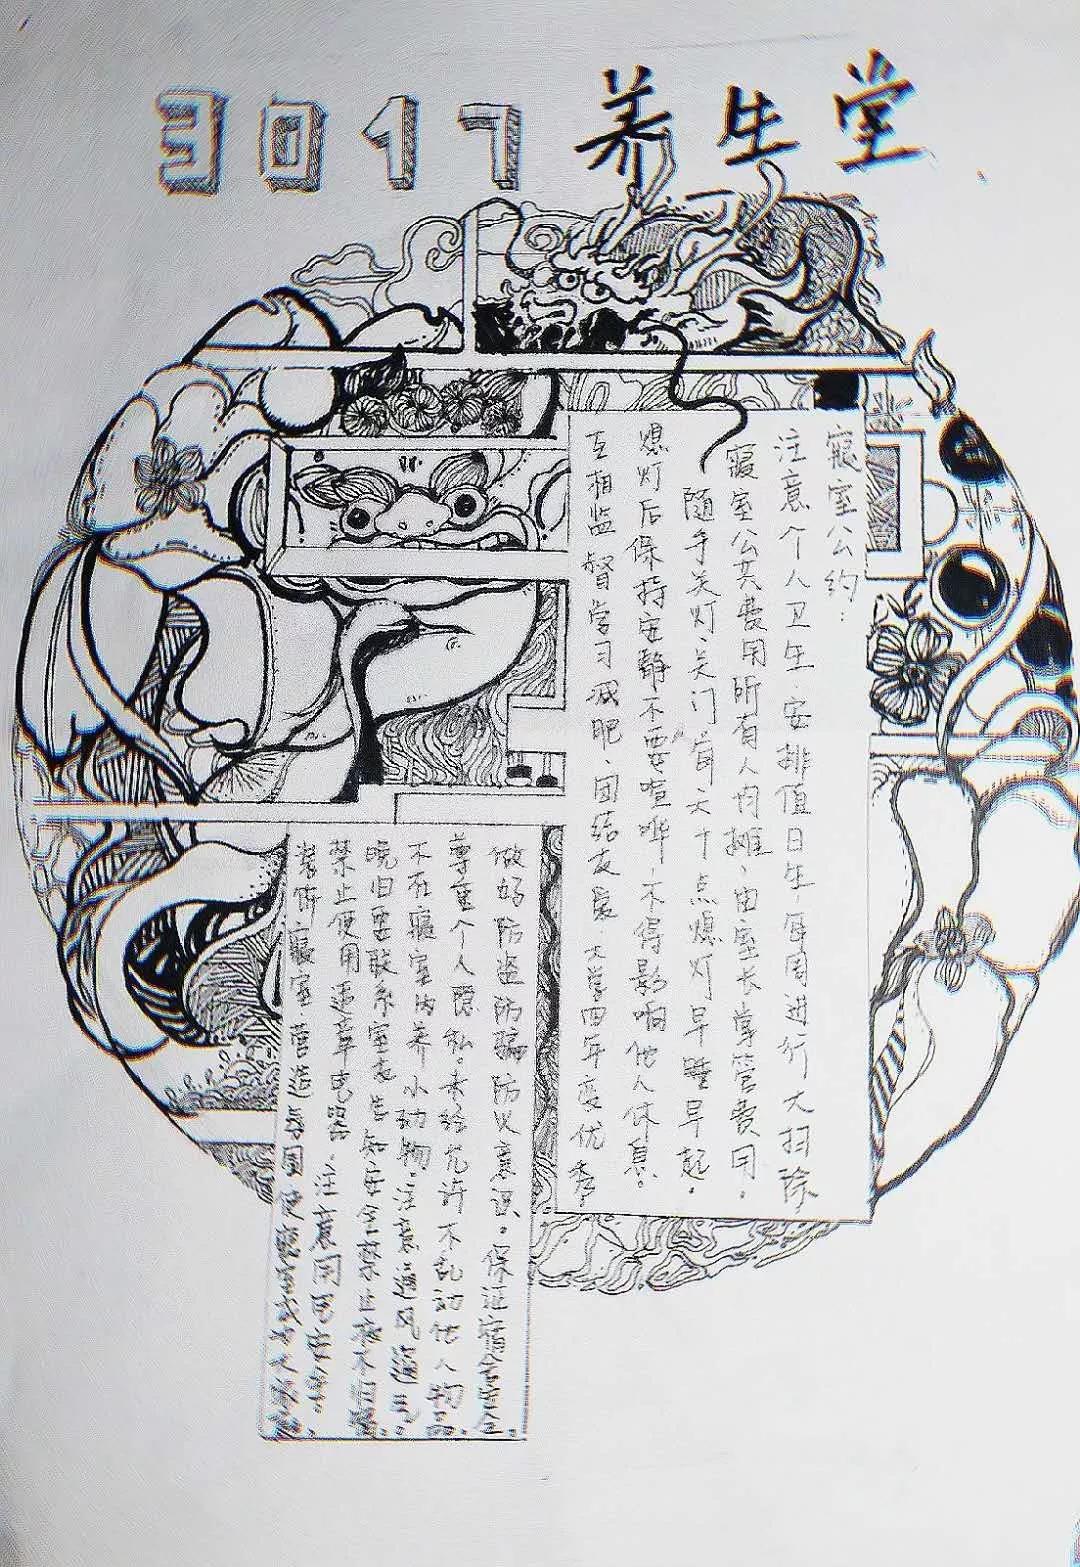 3017养生堂
寝室公约：
注意个人卫生、安排值日生，每周进行大扫除
寝室公共费用所有人均摊、由室长掌管费用。
随手关灯、关门 每天十点熄灯早睡早起。
熄灯后保持安静不要喧哗，不得影响他人休息。
互相监督学习减肥、团结友爱、大学四年变优秀
做好防盗防骗防火意识。保证寝室安全。
尊重个人隐私。未经允许不乱动他人物品。
不在寝室内养小动物。注意通风透气。
晚归要联系室友告知安全禁止夜不归宿。
禁止使用违章电器，注意用电安全。
装饰寝室 营造氛围 使寝室成为